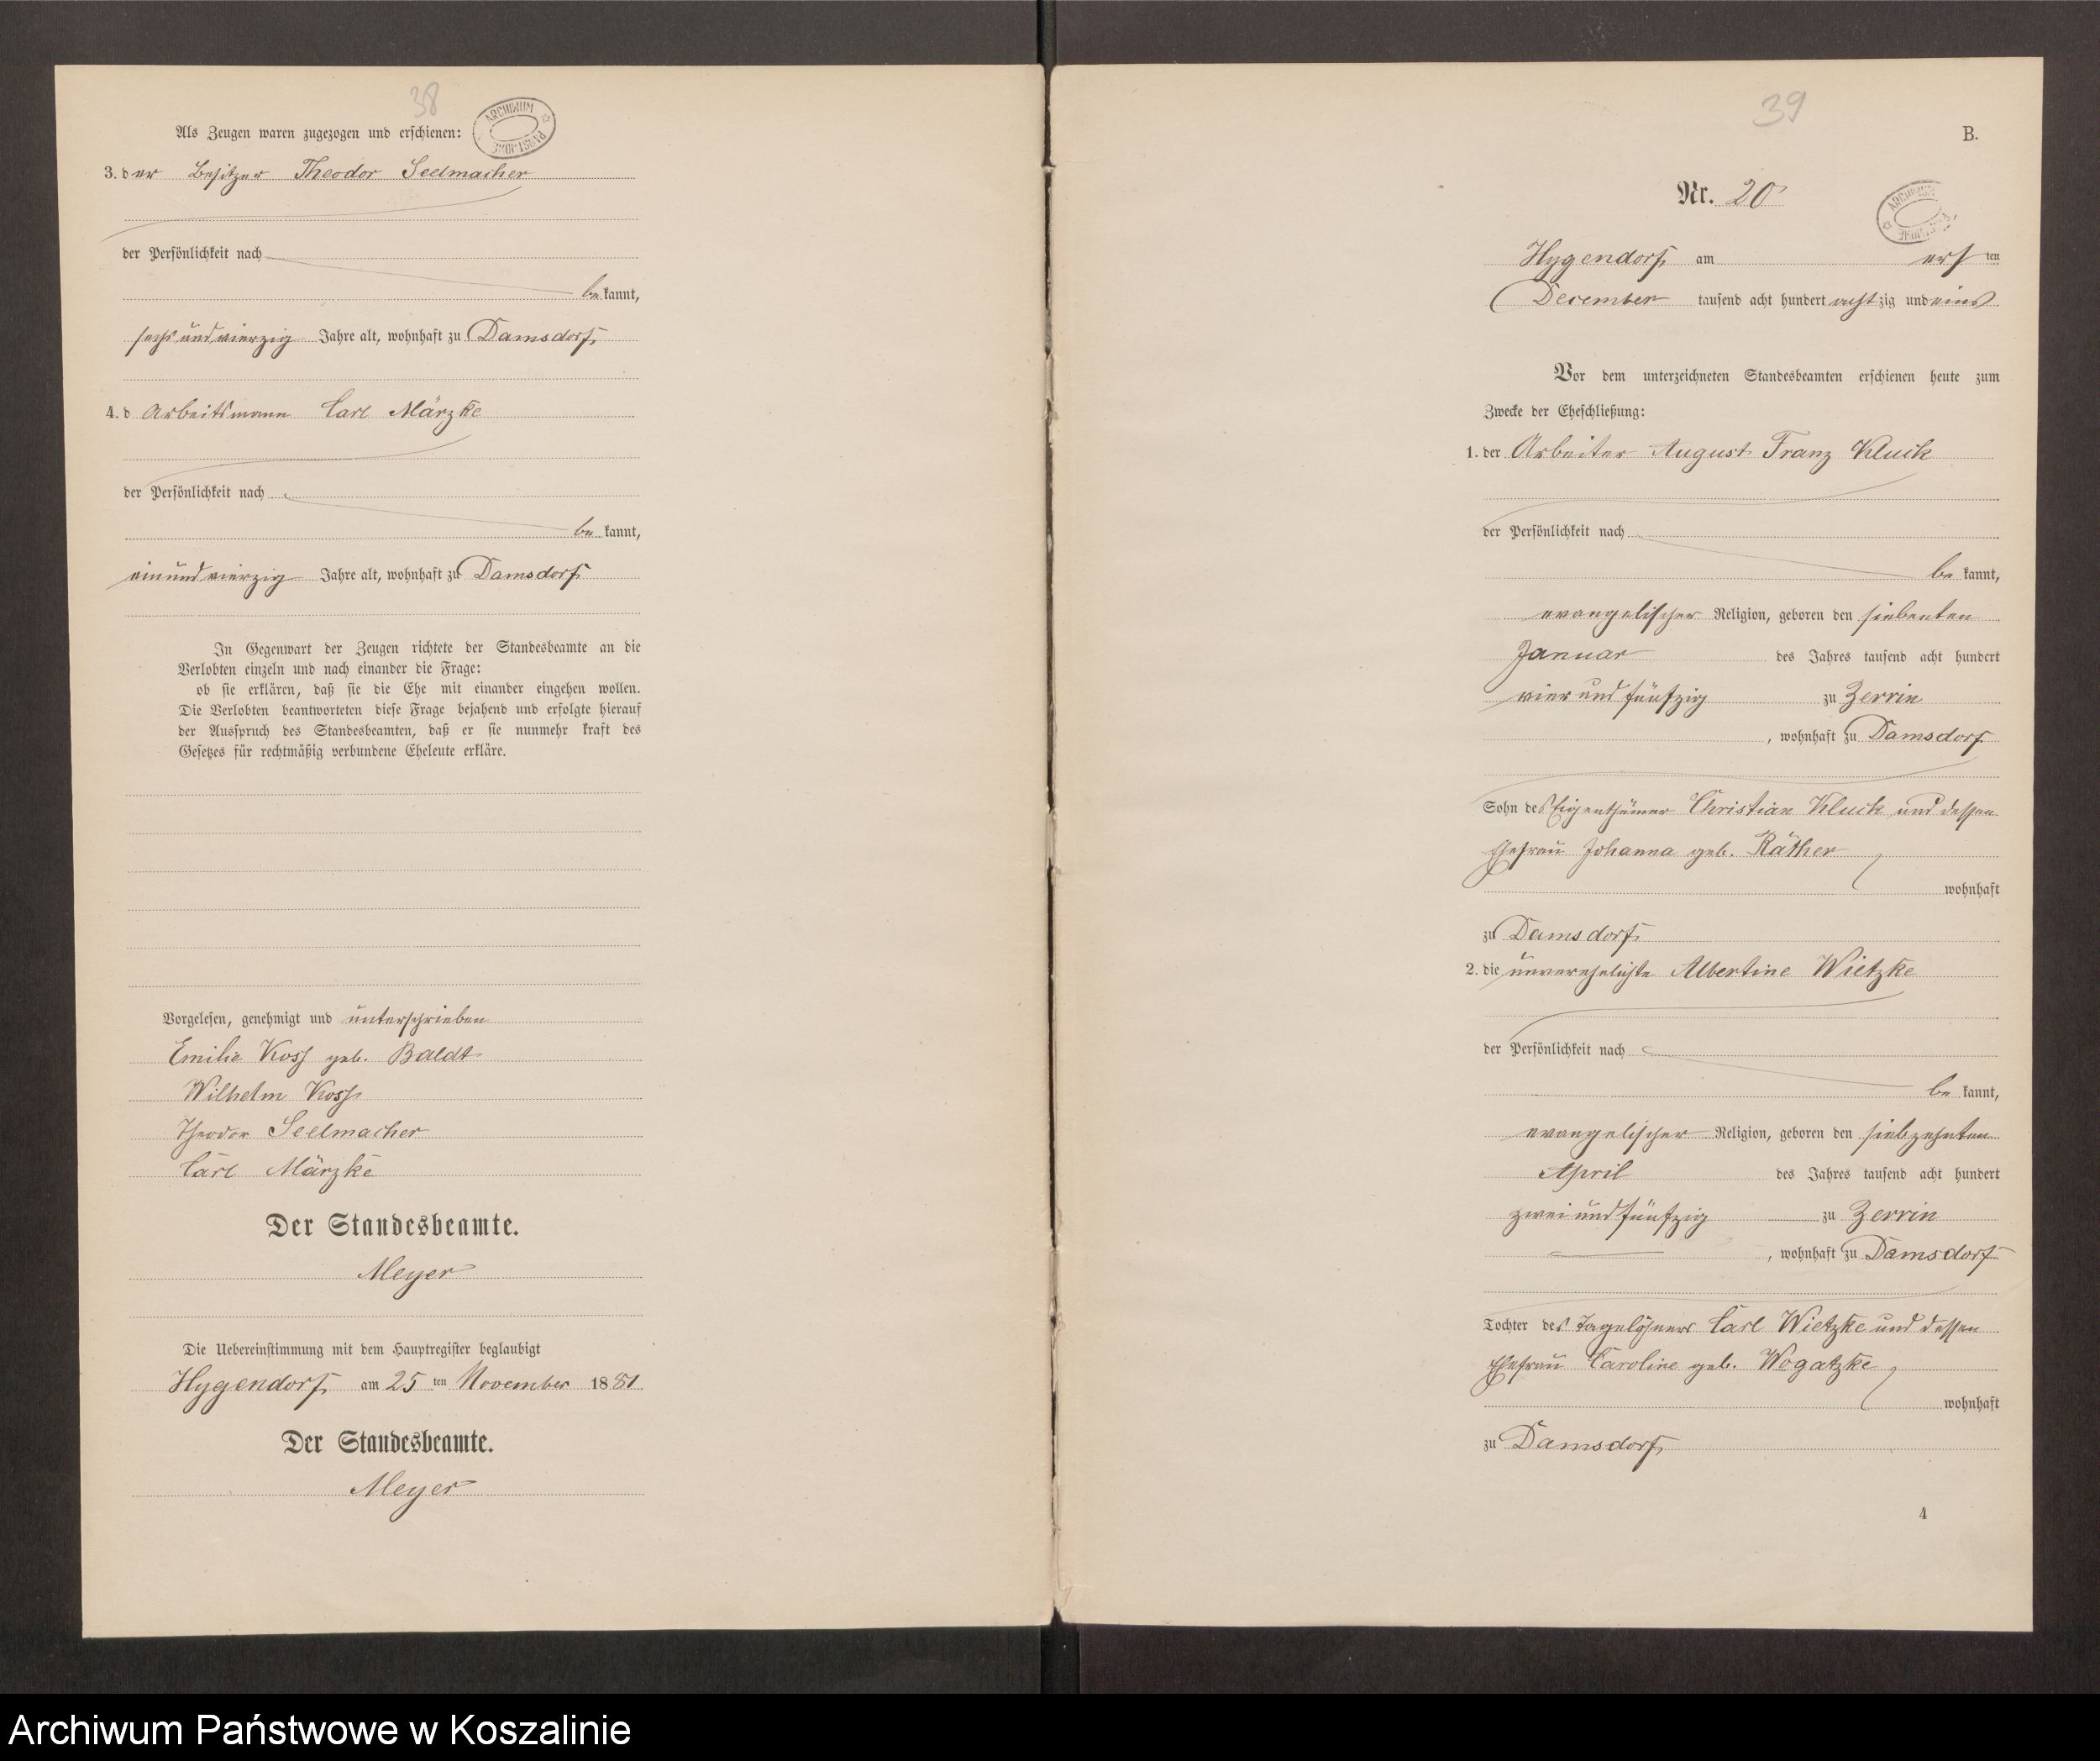 38
ARCHIWUM PAŃSTWOWE
Als Zeugen waren zugezogen und erschienen:
3. der Besitzer Theodor Seelmacher
der Persönlichkeit nach
be kannt,
sechs und vierzig Jahre alt, wohnhaft zu Damsdorf,
4. d Arbeitsmann Carl Märzke
der Persönlichkeit nach
be kannt,
ein und vierzig Jahre alt, wohnhaft zu Damsdorf
In Gegenwart der Zeugen richtete der Standesbeamte an die
Verlobten einzeln und nach einander die Frage:
ob sie erklären, daß sie die Ehe mit einander eingehen wollen.
Die Verlobten beantworteten diese Frage bejahend und erfolgte hierauf
der Ausspruch des Standesbeamten, daß er sie nunmehr kraft des
Gesetzes für rechtmäßig verbundene Eheleute erkläre.
Vorgelesen, genehmigt und unterschrieben
Emilie Koss geb. Baldt
Wilhelm Koss
Theodor Seelmacher
Carl Märzke
Der Standesbeamte.
Meyer
Die Uebereinstimmung mit dem Hauptregister beglaubigt
Hygendorf, am 25 ten November 1881
Der Standesbeamte.
Meyer
39
B.
Nr. 20
ARCHIWUM
Hygendorf, am ers ten
December tausend acht hundert acht zig und eins
Vor dem unterzeichneten Standesbeamten erschienen heute zum
Zwecke der Eheschließung:
1. der Arbeiter August Franz Kluik
der Persönlichkeit nach
be kannt,
evangelischer Religion, geboren den siebenten
Januar des Jahres tausend acht hundert
vier und fünfzig zu Zerrin
, wohnhaft zu Damsdorf
Sohn des Eigenthümer Christian Kluik und dessen
Ehefrau Johanna geb. Räther
wohnhaft
zu Damsdorf,
2. die unverehelichte Albertine Wietzke
der Persönlichkeit nach
be kannt,
evangelischer Religion, geboren den siebzehnten
April des Jahres tausend acht hundert
zwei und fünfzig zu Zerrin
, wohnhaft zu Damsdorf
Tochter des Tagelöhners Carl Wietzke und dessen
Ehefrau Caroline geb. Wogatzke
wohnhaft
zu Damsdorf,
4
Archiwum Państwowe w Koszalinie